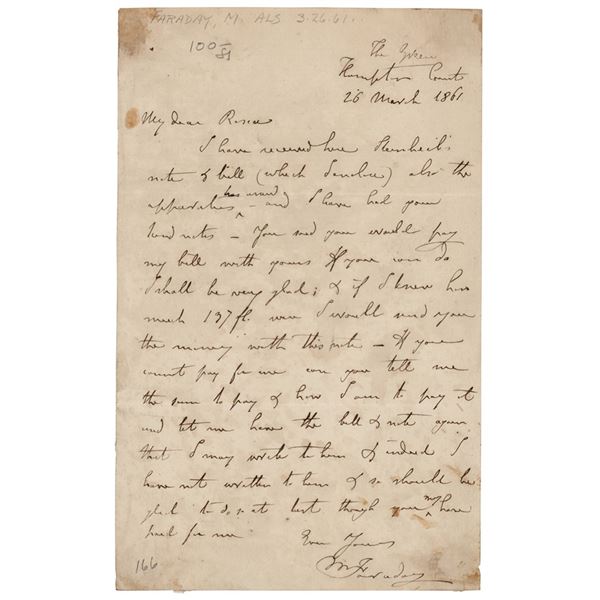 FARADAY, M. ALS 3.26.61.
100/81
The Green
Hampton Court
26 March 1861
My dear Roscoe
I have received here Steinheil's
note & bill (which I enclose) also the
apparatus has arrived - and I have had your
kind notes - You said you would pay
my bill with yours If you can do
I shall be very glad; & if I knew how
much 137 fl. were I would send you
the money with this note - If you
cannot pay for me can you tell me
the sum to pay & how I am to pay it
and let me have the bill & note again
that I may write to them & indeed I
have not written to them & so should be
glad to do so at last though you may have
paid for me
Ever Yours
M Faraday
166